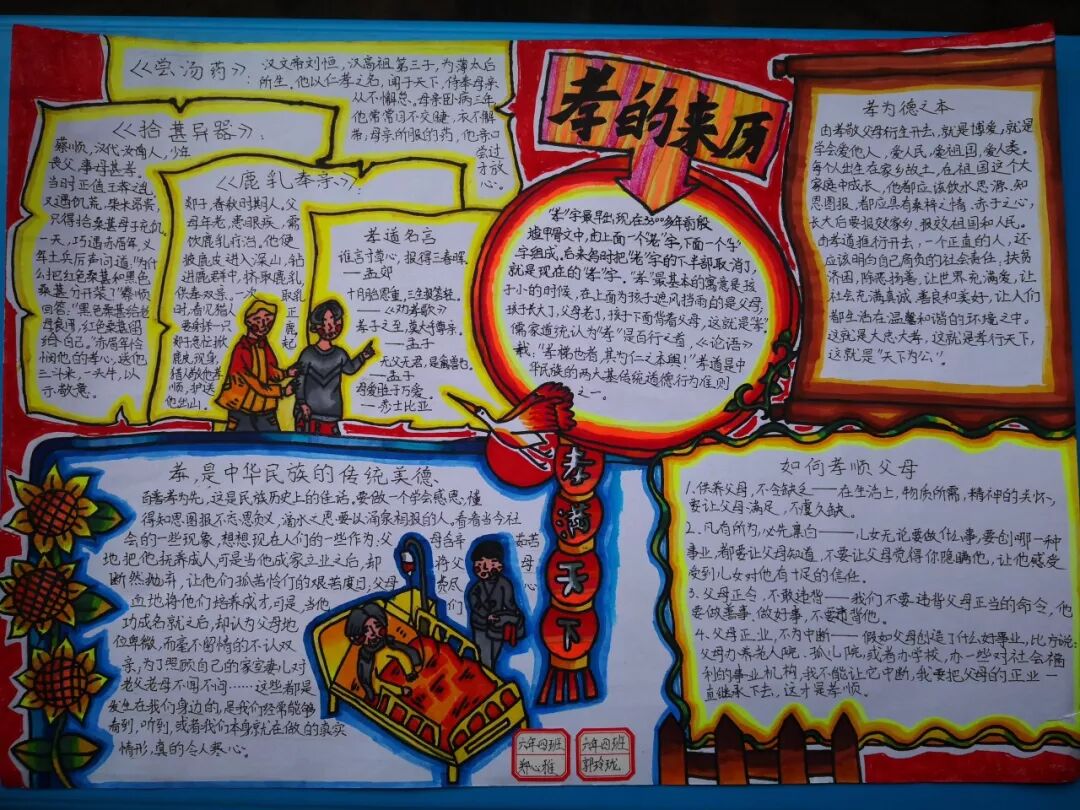 《尝汤药》：
汉文帝刘恒，汉高祖第三子，为薄太后
所生。他以仁孝之名，闻于天下，侍奉母亲
从不懈怠。母亲卧病三年
他常常目不交睫，衣不解
带；母亲所服的药，他亲口
尝过
才放
心。
《拾葚异器》：
蔡顺，汉代汝南人，少年
丧父，事母甚孝。
当时正值王莽之乱
又遇饥荒，柴米昂贵，
只得拾桑葚母子充饥。
一天，巧遇赤眉军，义
军士兵厉声问道："为什
么把红色桑葚和黑色
桑葚分开装？"蔡顺
回答："黑色桑葚给老
母食用，红色桑葚留
给自己。"赤眉军怜
悯他的孝心，送他
三斗米，一头牛，以
示敬意。
《鹿乳奉亲》：
郯子，春秋时期人，父
母年老，患眼疾，需
饮鹿乳疗治。他便
披鹿皮进入深山，钻
进鹿群中，挤取鹿乳，
供奉双亲。一次 取乳
时，看见猎人 正
要射杀一只 鹿
郯子急忙掀 起
鹿皮现身，
猎人敬他孝
顺，护送
他出山。
孝道名言
谁言寸草心，报得三春晖。
——孟郊
十月胎恩重，三生报答轻。
——《劝孝歌》
孝子之至，莫大于尊亲。
——孟子
无父无君，是禽兽也。
——孟子
母爱胜于万爱。
——莎士比亚
孝的来历
"孝"字最早出现在3300多年前殷
墟甲骨文中，由上面一个"老"字，下面一个"子"
字组成。后来写时把"老"字的下半部取消了，
就是现在的"孝"字。"孝"最基本的寓意是孩
子小的时候，在上面为孩子遮风挡雨的是父母，
孩子长大了，父母老了，孩子下面背着父母，这就是"孝"。
儒家道统认为"孝"是百行之首，《论语》
载："孝悌也者，其为仁之本舆！"孝道是中
华民族的两大基传统道德行为准则
之一。
孝为德之本
由孝敬父母衍生开去，就是博爱，就是
学会爱他人，爱人民，爱祖国，爱人类。
每个人出生在家乡故土，在祖国这个大
家庭中成长，他都应该饮水思源，知
恩图报，都应具有桑梓之情，赤子之心，
长大后要报效家乡，报效祖国和人民。
由孝道推衍开去，一个正直的人，还
应该明白自己肩负的社会责任，扶贫
济困，除恶扬善，让世界充满爱，让
社会充满真诚，善良和美好，让人们
都生活在温馨和谐的环境之中。
这就是大忠大孝，这就是孝行天下，
这就是"天下为公"。
孝，是中华民族的传统美德、
百善孝为先，这是民族历史上的佳话，要做一个学会感恩，懂
得知恩图报不忘恩负义，滴水之恩要以涌泉相报的人，看看当今社
会的一些现象，想想现在人们的一些作为，父母含辛茹苦
地把他抚养成人，可是当他成家立业之后，却将父母
断然抛弃，让他们孤苦伶仃的艰苦度日，父母费尽心
血地将他们培养成才，可是，当他们
功成名就之后，却认为父母地
位卑微，而毫不留情的不认双
亲，为了照顾自己的家室妻儿对
老父老母不闻不问……这些都是
发生在我们身边的，是我们经常能够
看到，听到，或者我们本身就在做的真实
情形，真的令人寒心。
孝满天下
如何孝顺父母
1.供养父母，不令缺乏——在生活上，物质所需，精神的关怀，
要让父母满足，不虞欠缺。
2.凡有所为，必先禀白——儿女无论要做什么事，要创哪一种
事业，都要让父母知道，不要让父母觉得你隐瞒他，让他感受
受到儿女对他有十足的信任。
3.父母正令，不敢违背——我们不要违背父母正当的命令，他
要做善事，做好事，不要违背他。
4.父母正业，不为中断——假如父母创造了什么好事业，比方说：
父母办养老人院，孤儿院，或者办学校，办一些对社会福
利的事业机构，我不能让它中断，我要把父母的正业一
直继承下去，这才是孝顺。
六年四班
郑心雅
六年四班
郭玲珑